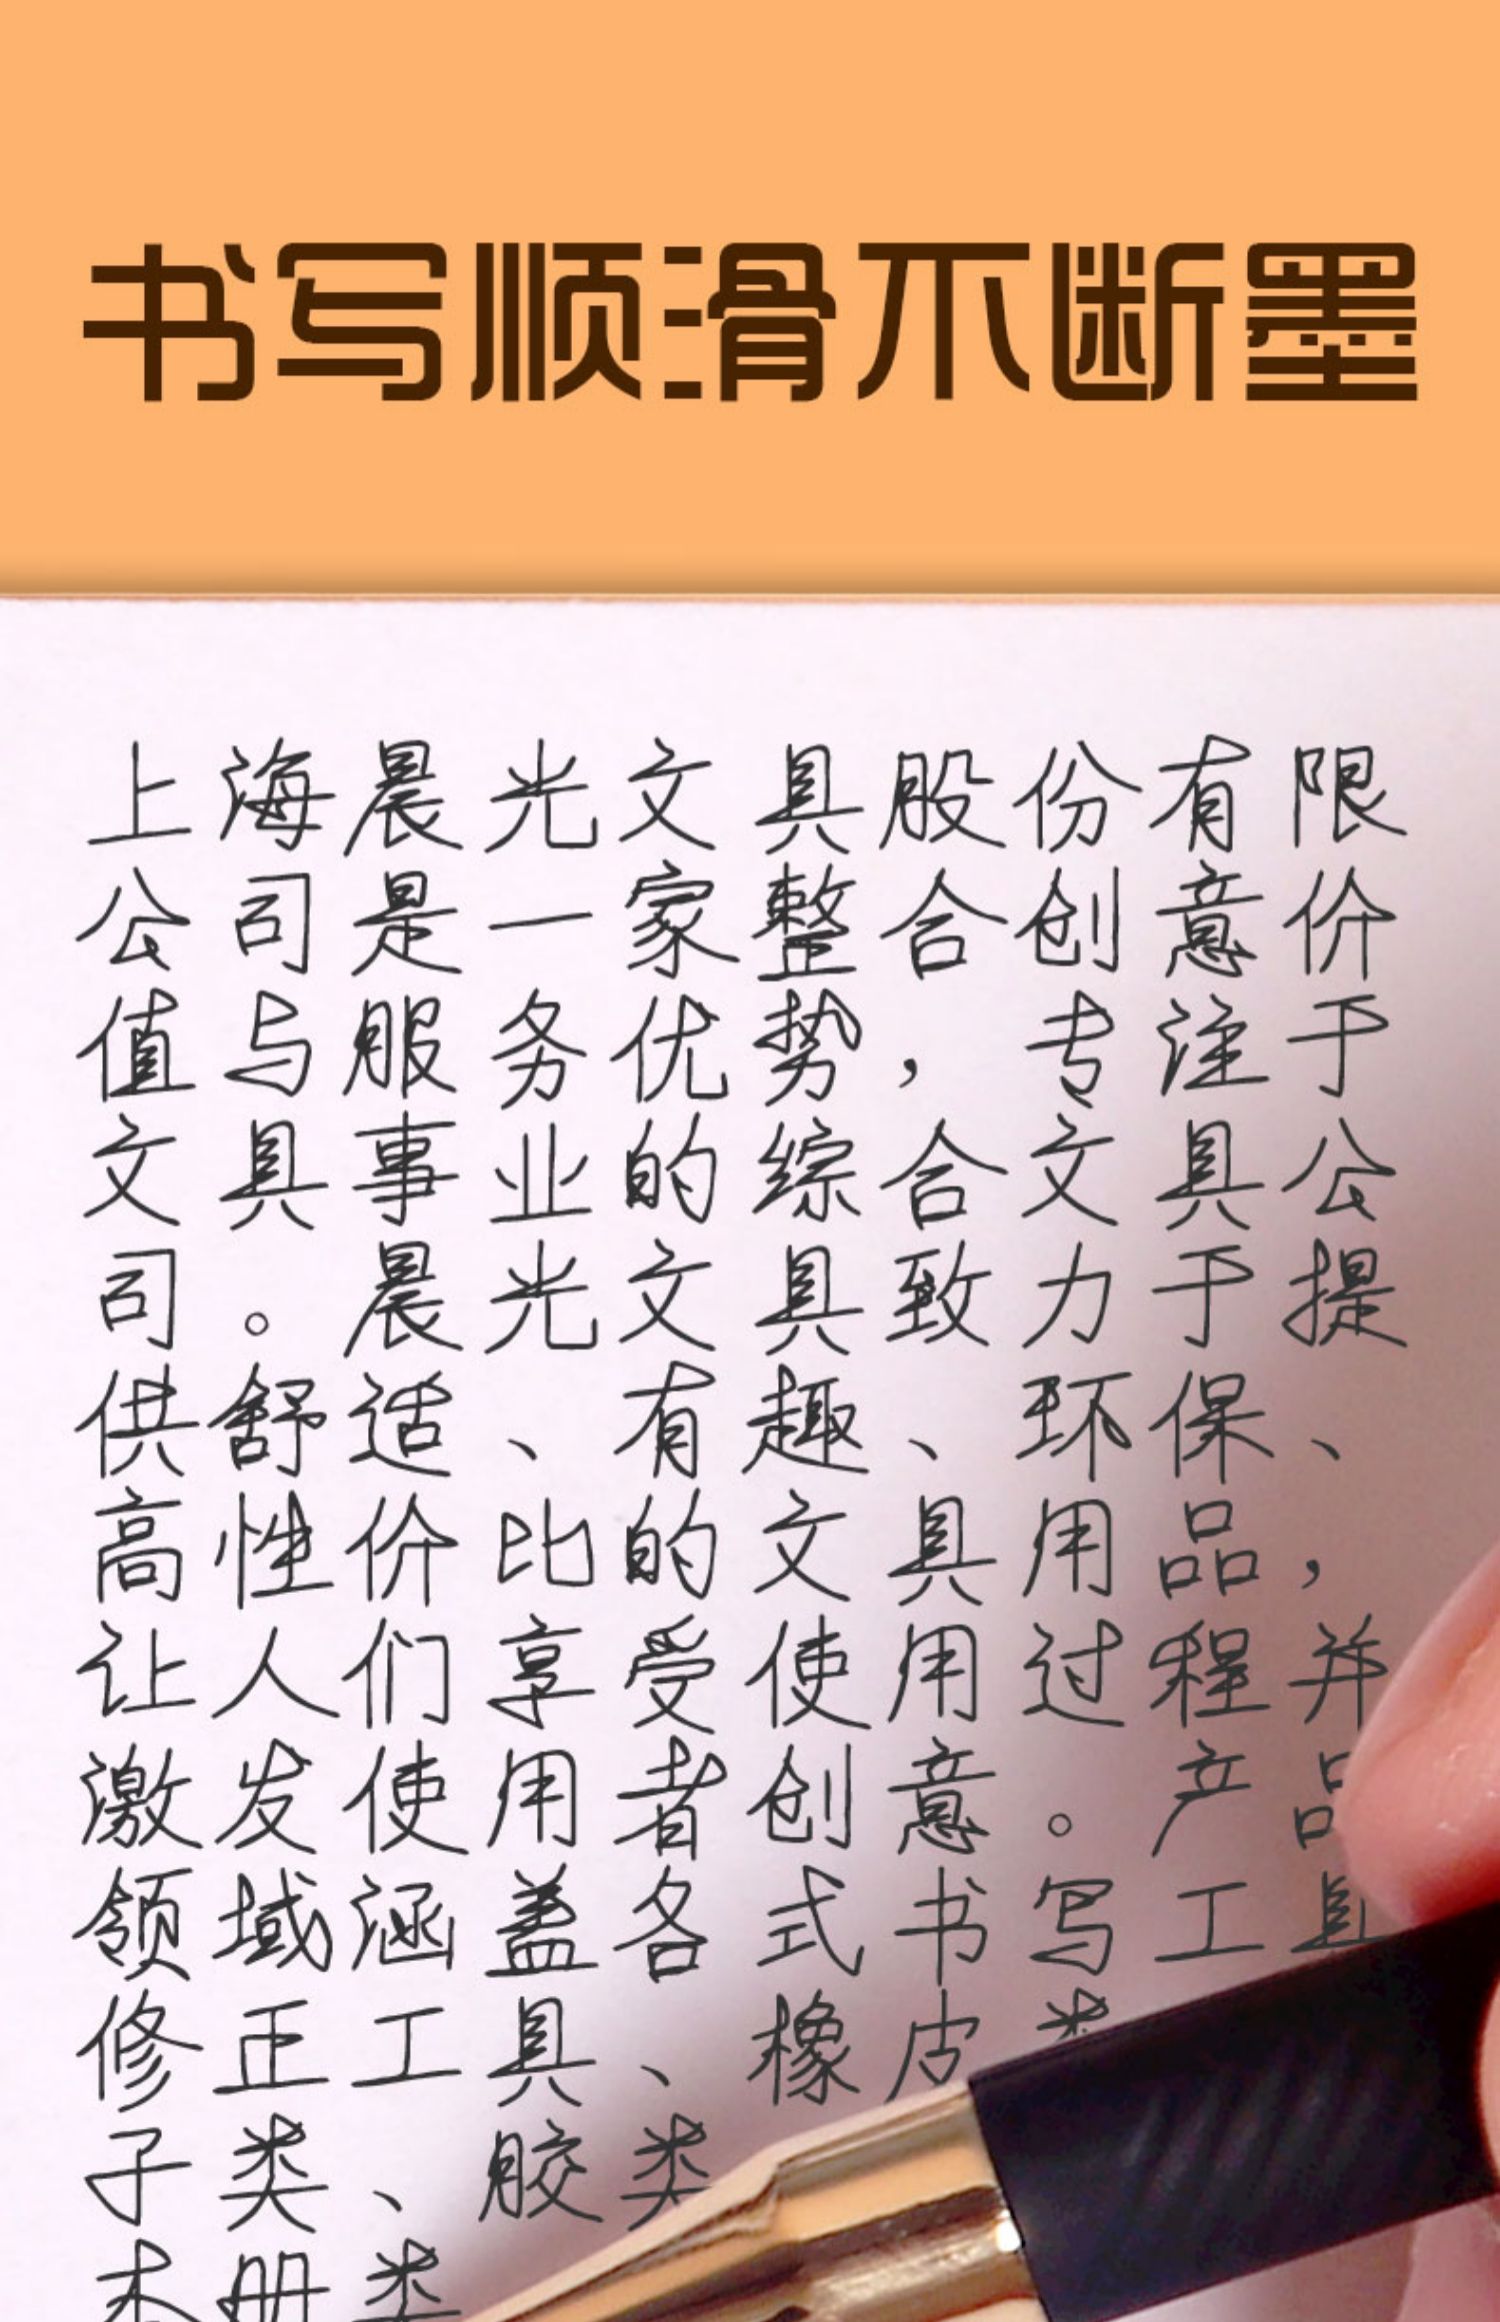 书写顺滑不断墨
上海晨光文具股份有限
公司是一家整合创意价
值与服务优势，专注于
文具事业的综合文具公
司。晨光文具致力于提
供舒适、有趣、环保、
高性价比的文具用品，
让人们享受使用过程并
激发使用者创意。产品
领域涵盖各式书写工具
修正工具、橡皮类
子类、胶类
本册类